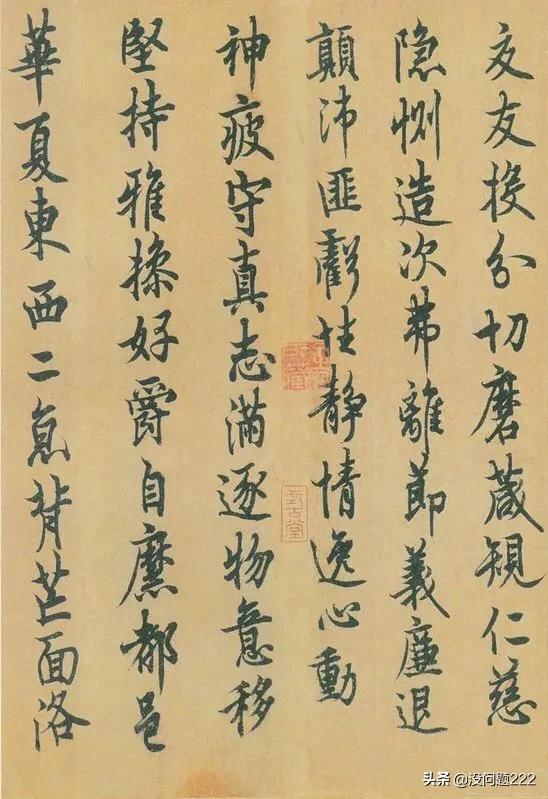 交友投分切磨箴規仁慈
隐惻造次弗離節義廉退
顛沛匪虧性靜情逸心動
神疲守真志滿逐物意移
堅持雅操好爵自縻都邑
華夏東西二京背芒面洛
头条 @没问题222